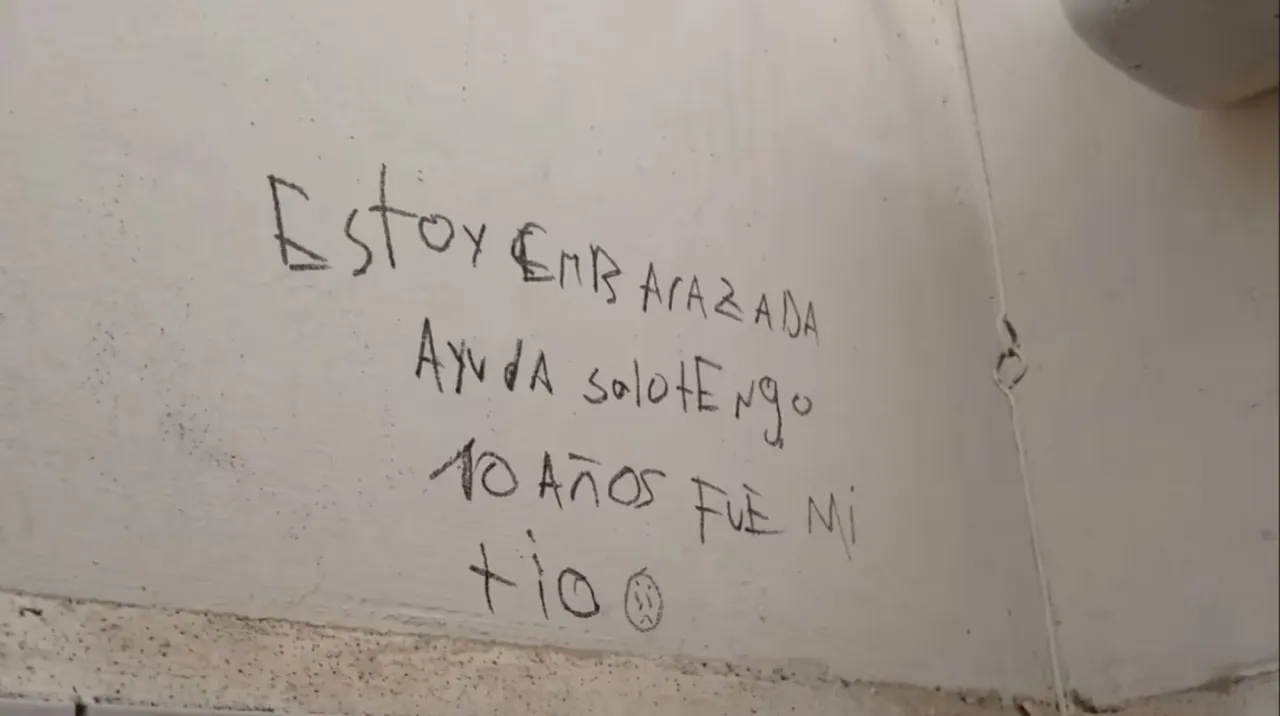 Estoy EMBArAZADA
AyudA solotEngo
10 AÑOS FUE Mi
tio